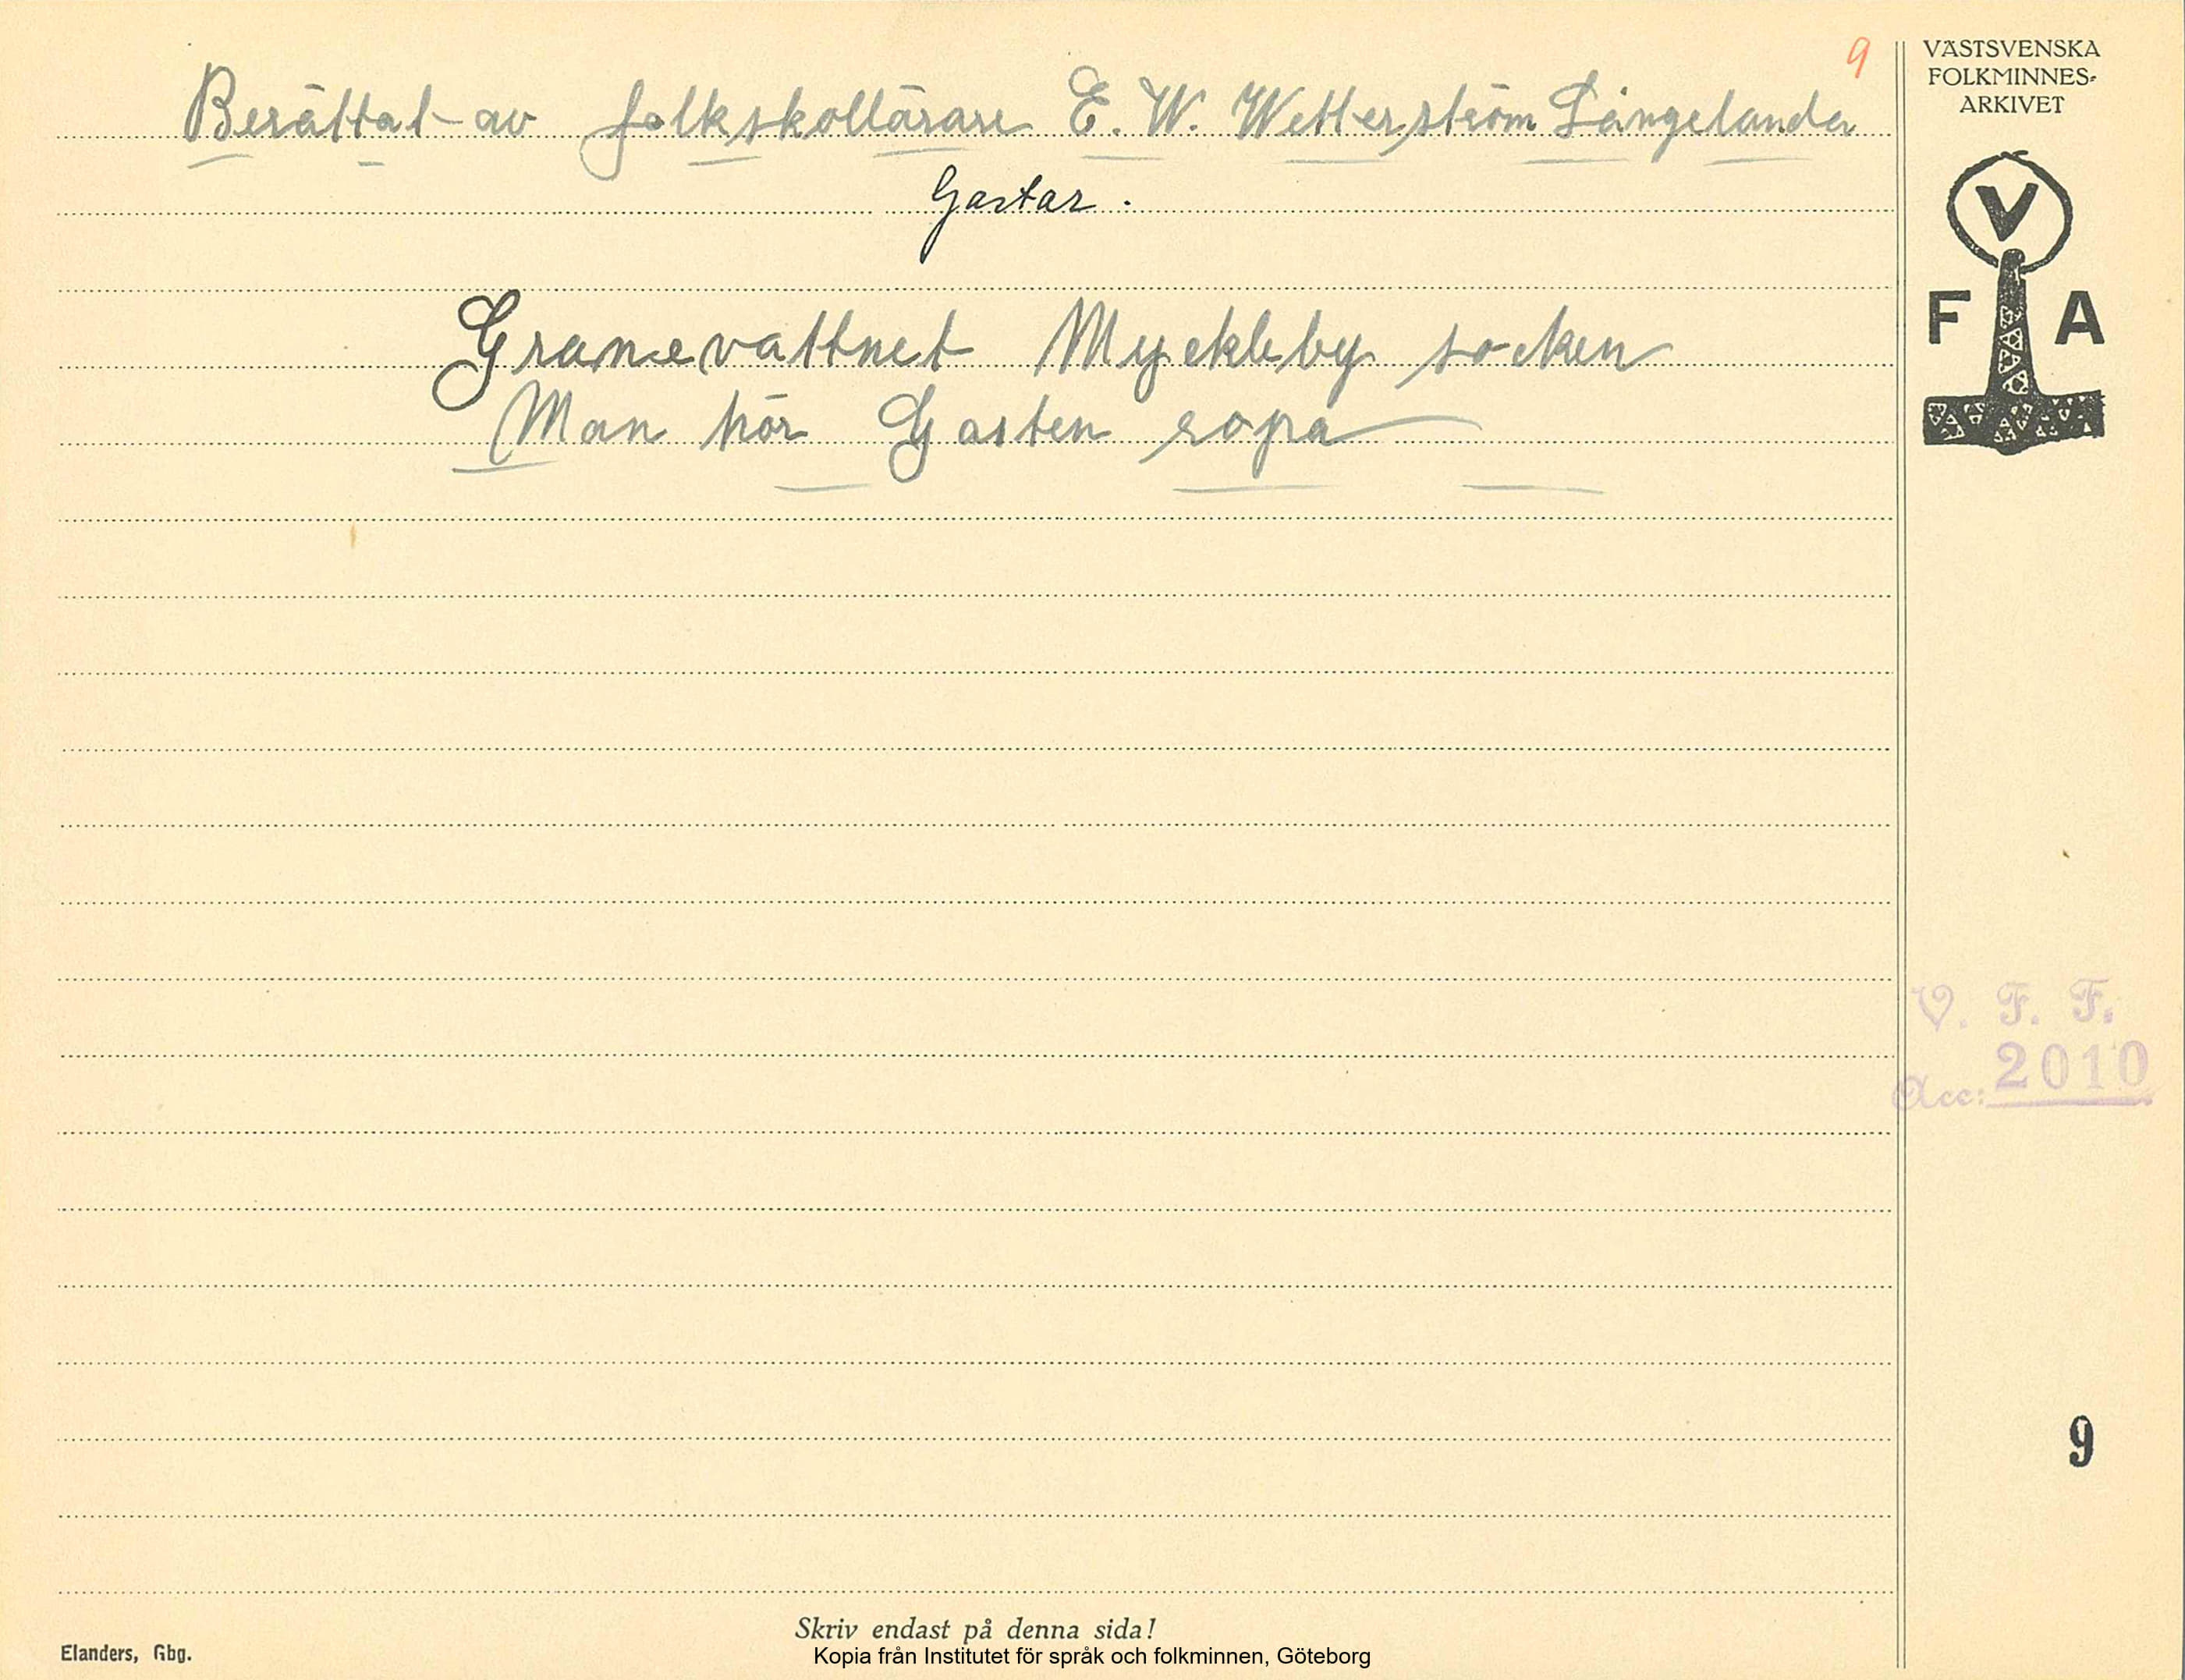 9
Berättat av folkskollärare E. W. Wetterström Långelanda
Gastar.
Granevattnet Myckleby socken
Man hör Gasten ropa
VÄSTSVENSKA
FOLKMINNES-
ARKIVET
V
F A
V. F. F.
Acc: 2010
9
Skriv endast på denna sida!
Elanders, Gbg.
Kopia från Institutet för språk och folkminnen, Göteborg